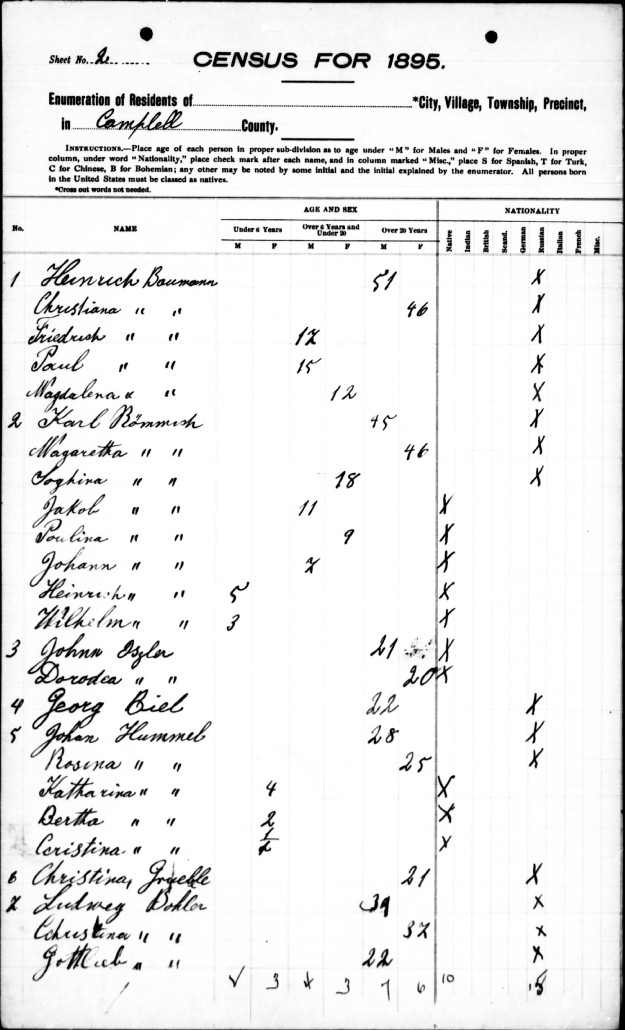 Sheet No. 2
CENSUS FOR 1895.
Enumeration of Residents of *City, Village, Township, Precinct,
in Campbell County.
INSTRUCTIONS.—Place age of each person in proper sub-division as to age under "M" for Males and "F" for Females. In proper
column, under word "Nationality," place check mark after each name, and in column marked "Misc.," place S for Spanish, T for Turk,
C for Chinese, B for Bohemian; any other may be noted by some initial and the initial explained by the enumerator. All persons born
in the United States must be classed as natives.
*Cross out words not needed.
AGE AND SEX NATIONALITY
No. NAME Under 6 Years Over 6 Years and Under 20 Over 20 Years Native Indian British Scand. German Russian Italian French Misc.
M F M F M F
1 Heinrich Baumann 51 X
Christiana " " 46 X
Friedrich " " 17 X
Paul " " 15 X
Magdalena " " 12 X
2 Karl Römmich 45 X
Magaretha " " 46 X
Soghina " " 18 X
Jakob " " 11 X
Paulina " " 9 X
Johann " " 7 X
Heinrich " " 5 X
Wilhelm " " 3 X
3 Johnn Oszler 21 X
Dorodea " " 20 X
4 Georg Biel 22 X
5 Johan Hummel 28 X
Rosina " " 25 X
Katharina " " 4 X
Bertha " " 2 X
Ceristina " " 1/2 X
6 Christina Grueble 21 X
7 Ludweg Bohler 39 X
Christina " " 37 X
Gottlieb " " 22 X
3 3 7 6 10 15